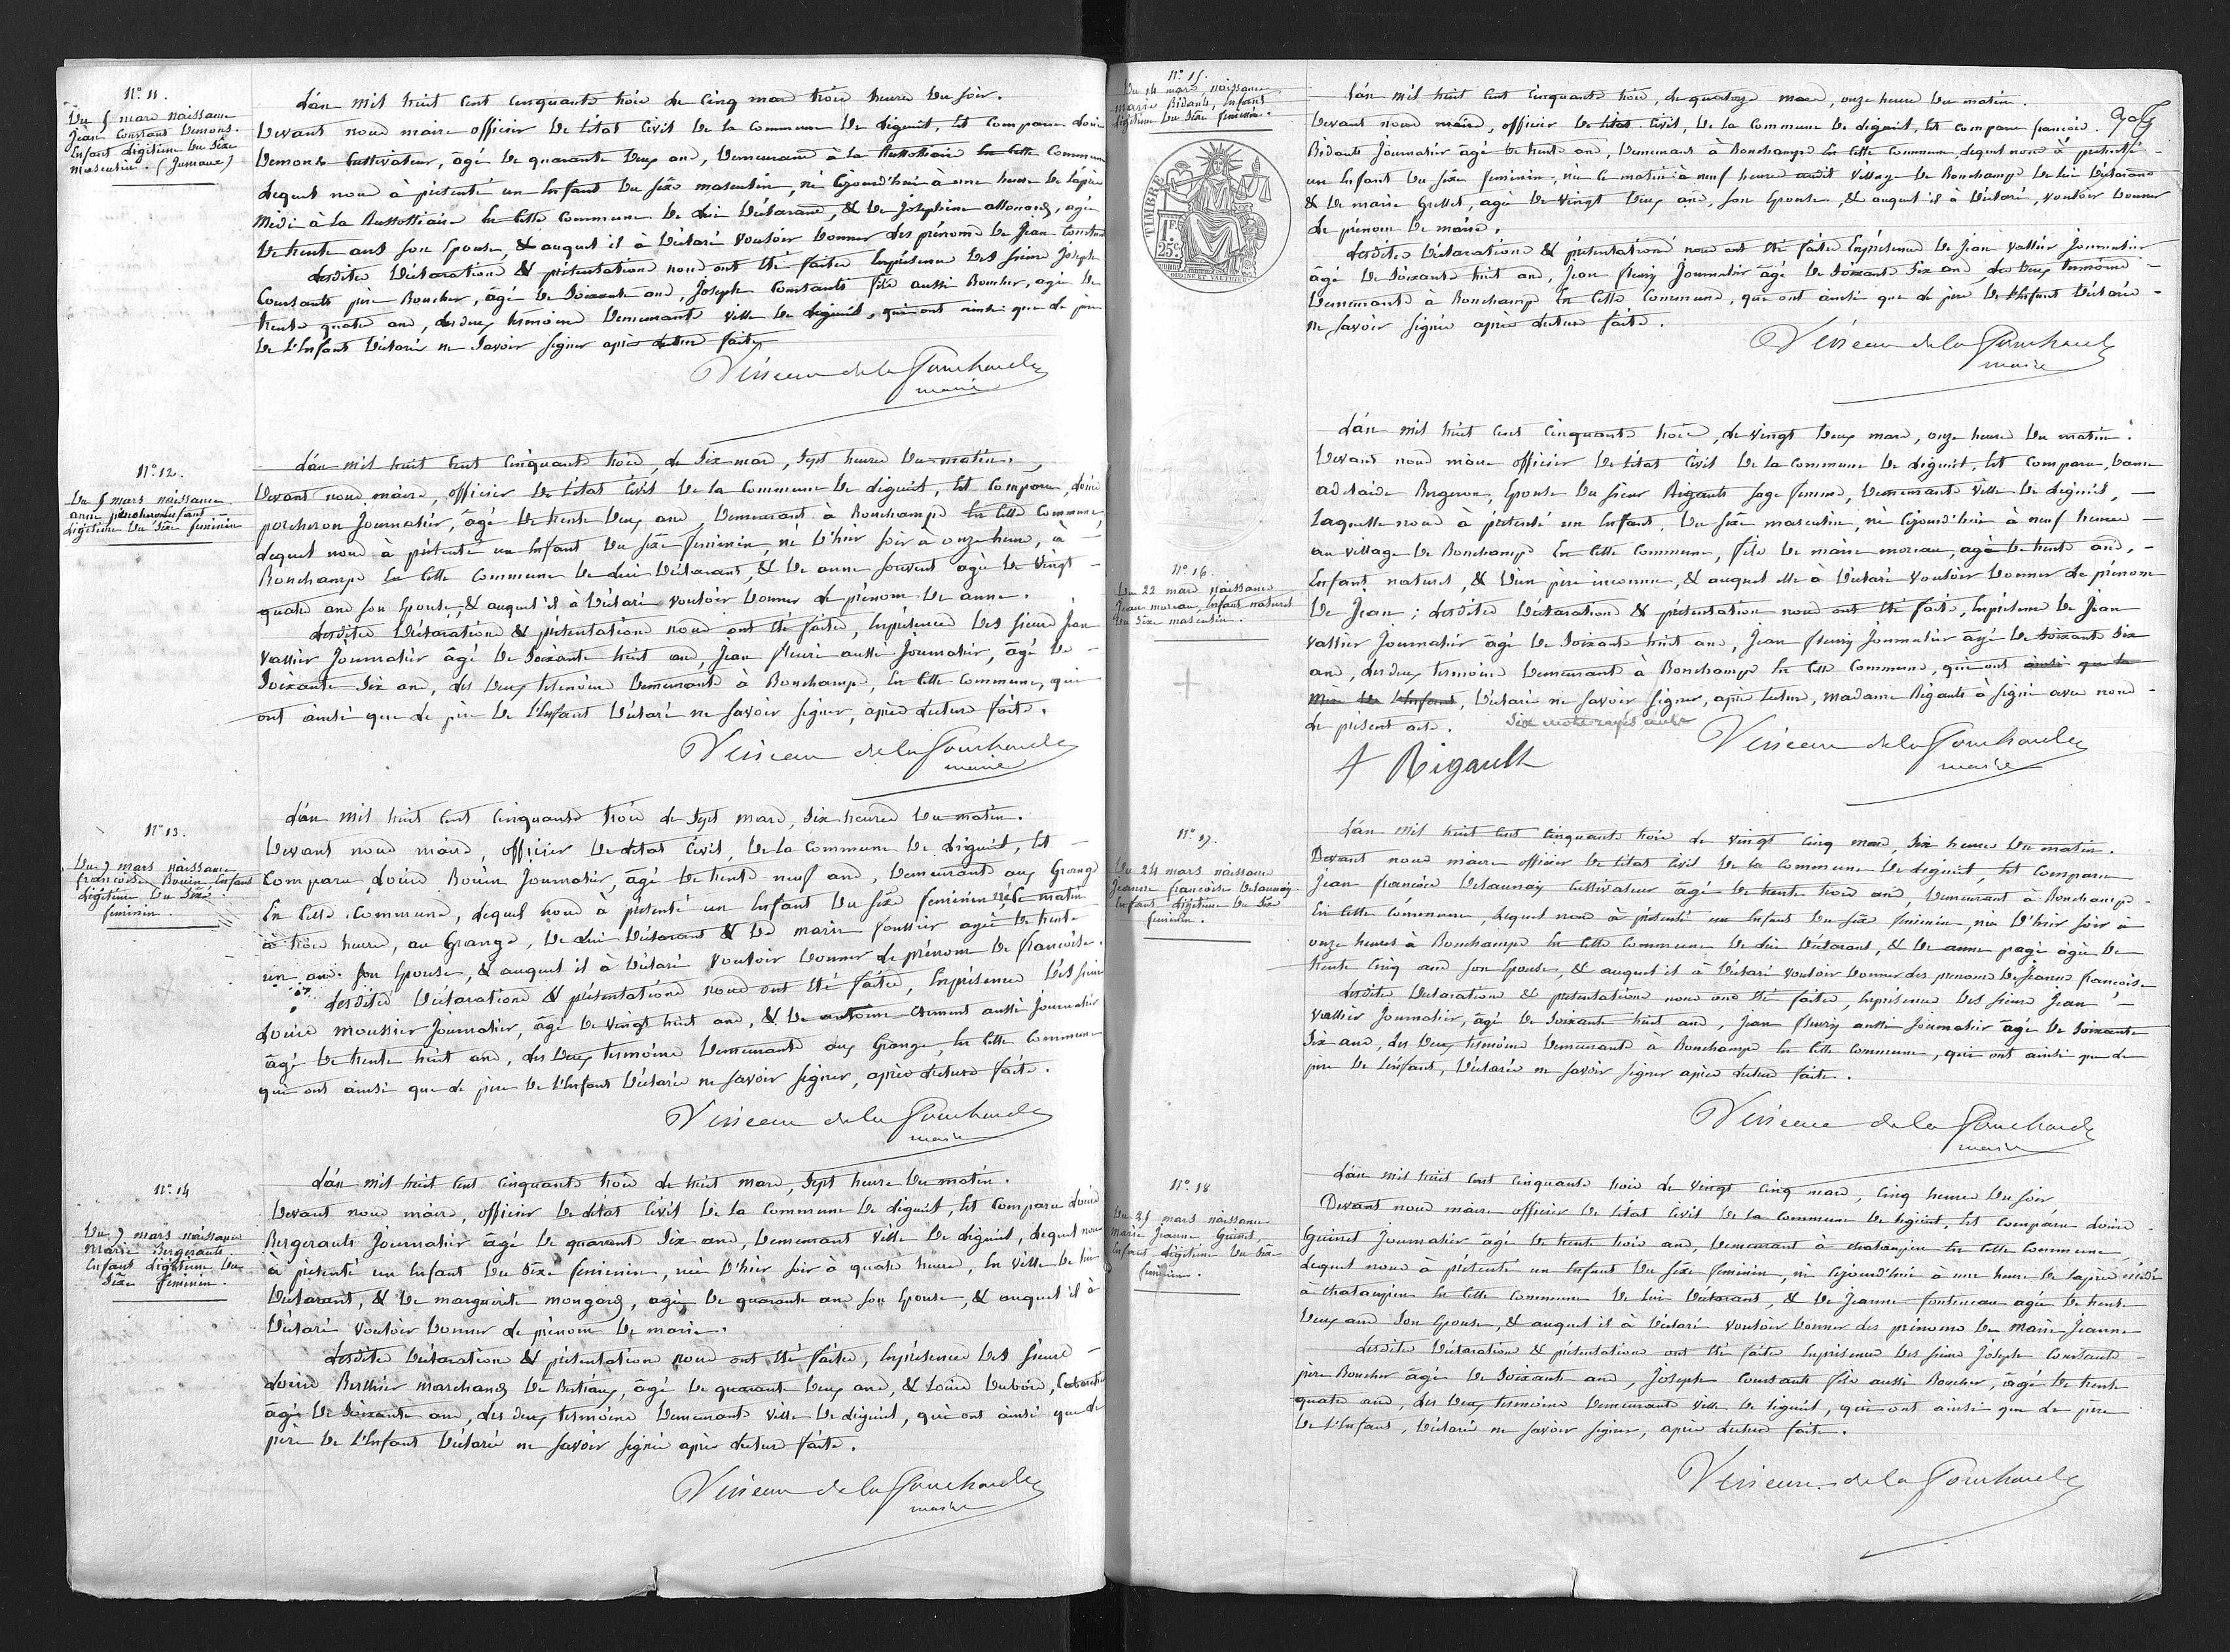 N° 11.
Du 5 mars naissance
Jean Constant Demons.
Enfant légitime du sexe
masculin. (Jumeau)
L'an mil huit cent cinquante trois le cinq mars trois heures du soir.
Devant nous maire officier de l'état civil de la commune de Ligueil, est comparu Louis
Demons cultivateur, âgé de quarante deux ans, demeurant à la en cette commune
lequel nous à présenté un enfant du sexe masculin, né cejourd'hui à une heure de l'après
midi à la en cette commune de lui déclarant, & de Joséphine agée
de trente ans son épouse, & auquel il à déclaré vouloir donner les prénoms de Jean Constant
Lesdites déclaration & présentation nous ont été faites en présence des sieurs Joseph
Constant père Boucher, âgé de soixante ans, Joseph Constant fils aussi Boucher, agé de
trente quatre ans, les deux témoins demeurants ville de Ligueil, qui ont ainsi que le père
de l'enfant déclaré ne savoir signer après lecture faite
maire
N° 12.
Du 5 mars naissance
anne porcheron enfant
légitime du sexe féminin
L'an mil huit cent cinquante trois, le six mars, sept heures du matin,
Devant nous maire, officier de l'état civil de la commune de Ligueil, est comparu, Louis
porcheron journalier, âgé de trente deux ans, demeurant à Bonchamps en cette commune,
lequel nous à présenté un enfant du sexe féminin, né d'hier soir à onze heures, à
Bonchamps en cette commune de lui déclarant, & de anne jouvent agée de vingt
quatre ans son épouse, & auquel il à déclaré vouloir donner le prénom de anne.
Lesdites déclaration & présentation nous ont été faites, en présence des sieurs Jean
Vallier journalier âgé de soixante huit ans, Jean fleuri aussi journalier, âgé de
soixante six ans, les deux témoins demeurants à Bonchamps, en cette commune, qui
ont ainsi que le père de l'enfant déclaré ne savoir signer, après lecture faite.
maire
N° 13.
Du 7 mars naissance
françoise Bouin enfant
légitime du sexe
féminin
L'an mil huit cent cinquante trois le sept mars, six heures du matin.
Devant nous maire, officier de l'état civil, de la commune de Ligueil, est
comparu Louis Bouin journalier, âgé de trente neuf ans demeurant aux Granges
en cette commune, lequel nous à présenté un enfant du sexe féminin né ce matin
à trois heures, au Granges, de lui déclarant & de marie agée de trente
un ans son épouse, & auquel il à déclaré vouloir donner le prénom de françoise.
Lesdites déclaration & présentation nous ont été faites, en présence des sieurs
Louis moussier journalier, âgé de vingt huit ans, & de antoine Clement aussi journalier
âgé de trente huit ans, les deux témoins demeurants aux Granges, en cette commune
qui ont ainsi que le père de l'enfant déclaré ne savoir signer, après lecture faite.
maire
N° 14
Du 7 mars naissance
Marie Bergerault
enfant légitime du
sexe féminin.
L'an mil huit cent cinquante trois le huit mars, sept heures du matin.
Devant nous maire, officier de l'état civil de la commune de Ligueil, est comparu Louis
Bergerault journalier âgé de quarante six ans, demeurant ville de Ligueil, lequel nous
à présenté un enfant du sexe féminin, née d'hier soir à quatre heures, en ville de lui
déclarant, & de marguerite mongard, agée de quarante ans son épouse, & auquel il à
déclaré vouloir donner le prénom de marie.
Lesdites déclaration & présentation nous ont été faites, en présence des sieurs
Louis Berthier marchand de Bestiaux, âgé de quarante deux ans, & Louis Dubois,
âgé de soixante ans, les deux témoins demeurants ville de Ligueil, qui ont ainsi que le
père de l'enfant déclaré ne savoir signer après lecture faite.
maire
N° 15.
Du 14 mars naissance
marie Bidault, enfant
légitime du sexe féminin.
TIMBRE
1 F.
25 c.
L'an mil huit cent cinquante trois, le quatorze mars, onze heures du matin.
Devant nous maire, officier de l'état civil, de la commune de Ligueil, est comparu françois
Bidault journalier âgé de trente ans, demeurant à Bonchamps en cette commune, lequel nous à présenté
un enfant du sexe féminin, née ce matin à neuf heures audit village de Bonchamps de lui déclarant
& de marie Grellet, agée de vingt deux ans, son épouse, & auquel il à déclaré, vouloir donner
le prénom de marie.
Lesdites déclaration & présentation nous ont été faites en présence de Jean Vallier journalier
âgé de soixante huit ans, Jean fleury journalier âgé de soixante six ans, les deux témoins
demeurants à Bonchamps en cette commune, qui ont ainsi que le père de l'enfant déclaré
ne savoir signer après lecture faite.
maire
N° 16.
Du 22 mars naissance
Jean moreau, enfant naturel
du sexe masculin.
L'an mil huit cent cinquante trois, le vingt deux mars, onze heures du matin.
Devant nous maire officier de l'état civil de la commune de Ligueil, est comparu, dame
adelaïde Bergeron, épouse du sieur Rigault sage femme, demeurante ville de Ligueil,
laquelle nous à présenté un enfant, du sexe masculin, né cejourd'hui à neuf heures
au village de Bonchamps en cette commune, fils de marie moreau, agée de trente ans,
enfant naturel, & d'un père inconnu, & auquel elle à déclaré vouloir donner le prénom
de Jean; Lesdites déclaration & présentation nous ont été faites, en présence de Jean
Vallier journalier âgé de soixante huit ans, Jean fleury journalier âgé de soixante six
ans, les deux témoins demeurant à Bonchamps en cette commune, qui ont ainsi que la
mère de l'enfant, déclaré ne savoir signer, après lecture, madame Rigault à signé avec nous
le présent acte. Six mots rayés nuls
A Rigault
maire
N° 17.
Du 24 mars naissance
Jeanne françoise Delaunay
enfant légitime du sexe
féminin.
L'an mil huit cent cinquante trois le vingt cinq mars, six heures du matin.
Devant nous maire officier de l'état civil de la commune de Ligueil, est comparu
Jean françois Delaunay cultivateur âgé de trente trois ans, demeurant à Bonchamps
en cette commune, lequel nous à présenté un enfant du sexe féminin, née d'hier soir à
onze heures à Bonchamps en cette commune de lui déclarant, & de anne pagé agée de
trente cinq ans son épouse, & auquel il à déclaré vouloir donner les prénoms de Jeanne françoise
Lesdites déclaration & présentation nous ont été faites, en présence des sieurs Jean
Vallier journalier, âgé de soixante huit ans, Jean fleury aussi journalier âgé de soixante
six ans, les deux témoins demeurants à Bonchamps en cette commune, qui ont ainsi que le
père de l'enfant, déclaré ne savoir signer après lecture faite.
maire
N° 18
Du 25 mars naissance
marie Jeanne Guinet,
enfant légitime du sexe
féminin.
L'an mil huit cent cinquante trois le vingt cinq mars, cinq heures du soir
Devant nous maire officier de l'état civil de la commune de Ligueil, est comparu Louis
Guinet journalier âgé de trente trois ans, demeurant à en cette commune
lequel nous à présenté un enfant du sexe féminin, né cejourd'hui à une heure de l'après midi
à en cette commune de lui déclarant, & de Jeanne fonteneau agée de trente
deux ans son épouse, & auquel il à déclaré vouloir donner les prénoms de Marie Jeanne
Lesdites déclaration & présentation ont été faites en présence des sieurs Joseph Constant
père Boucher âgé de soixante ans, Joseph Constant fils aussi Boucher, âgé de trente
quatre ans, les deux témoins demeurants ville de Ligueil, qui ont ainsi que le père
de l'enfant, déclaré ne savoir signer, après lecture faite.